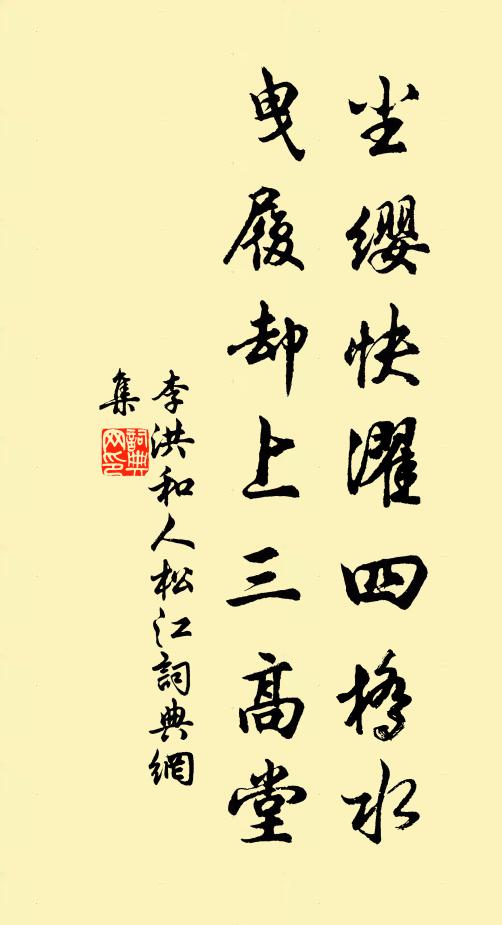 尘缨快濯四桥水
曳履却上三高堂
李洪和人松江词典網
集
詞典网印